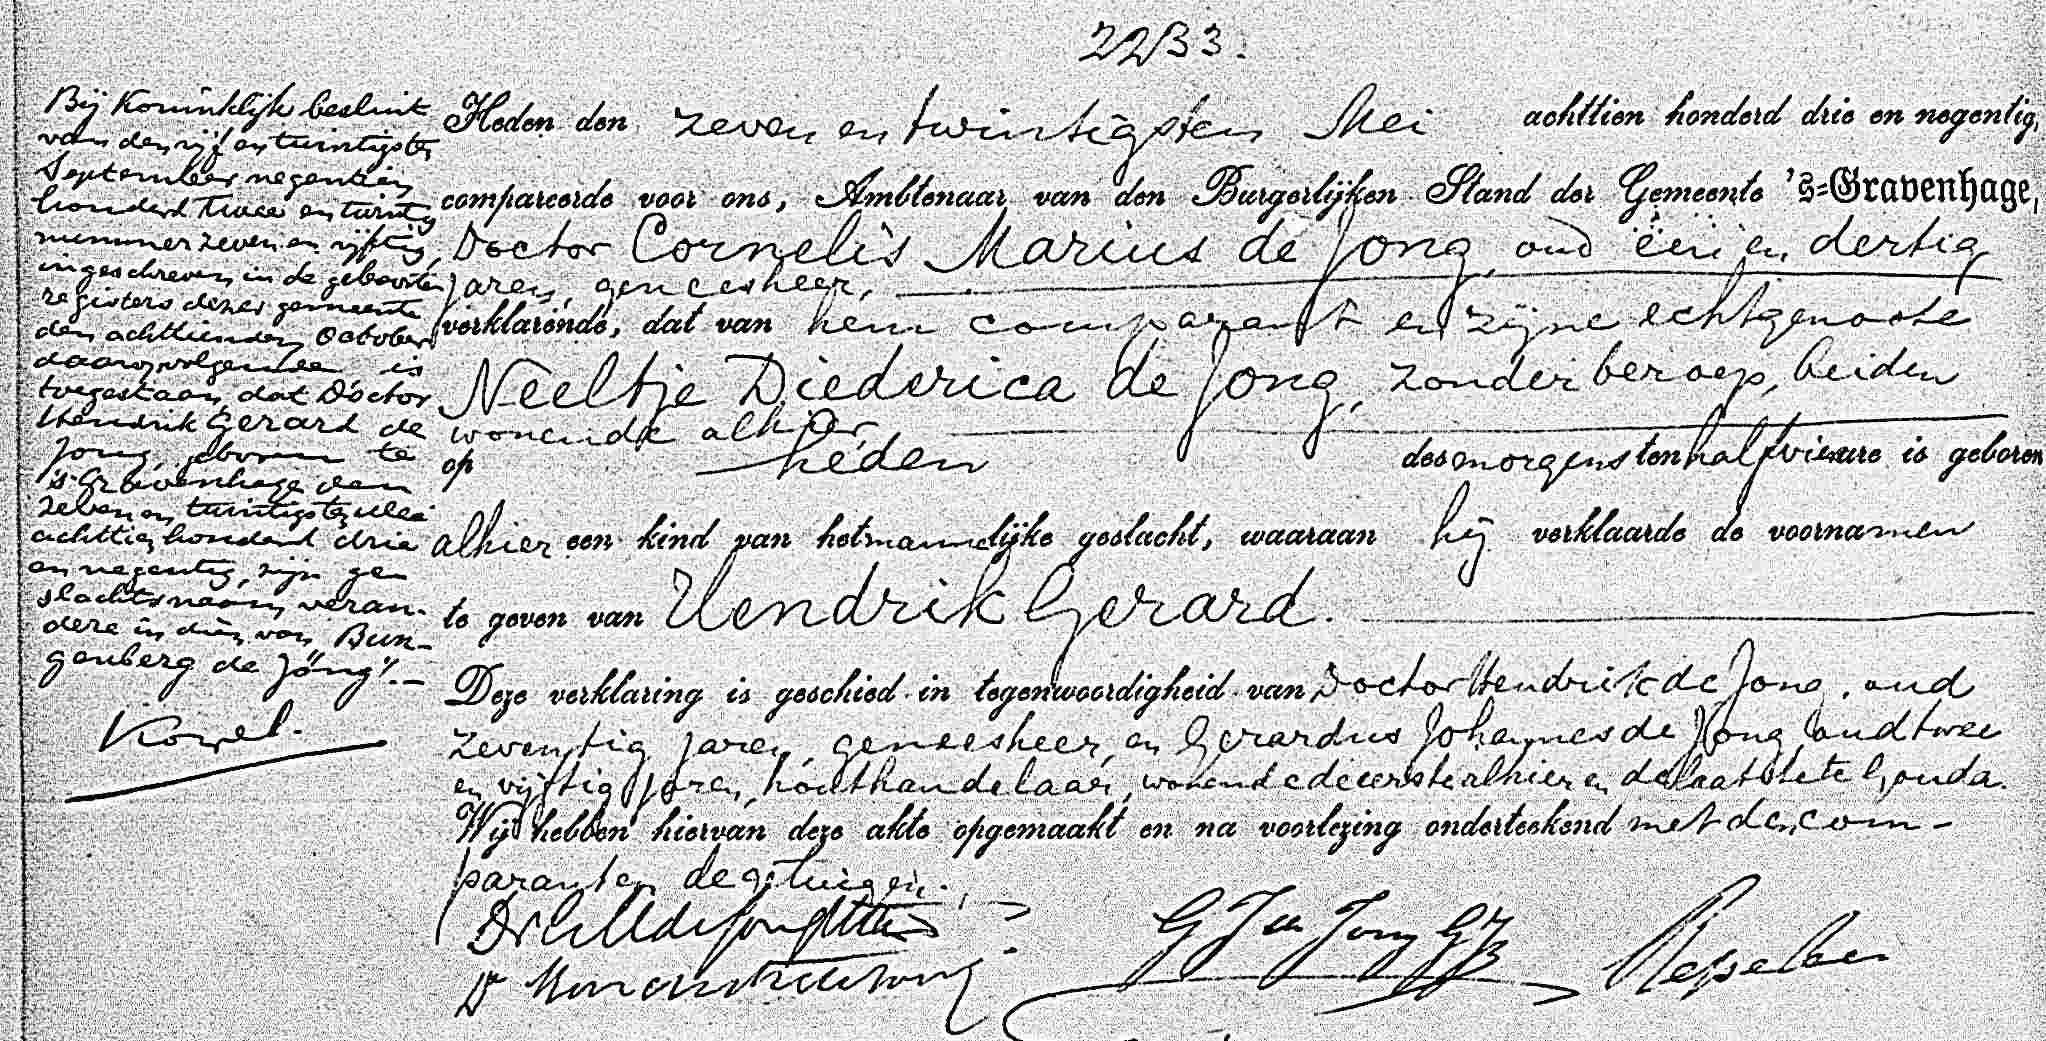 2233.
Bij Koninklijk besluit
van den vijf en twintigsten
September negentien
honderd twee en twintig
nummer zeven en vijftig,
ingeschreven in de geboorte
registers dezer gemeente
den achttienden October
daaropvolgende is
toegestaan dat Doctor
Hendrik Gerard de
Jong, geboren te
's-Gravenhage den
zeven en twintigsten Mei
achttien honderd drie
en negentig, zijn ge
slachtsnaam veran-
dere in dien van "Bun-
genberg de Jong".-
Heden den zeven en twintigsten Mei achttien honderd drie en negentig,
compareerde voor ons, Ambtenaar van den Burgerlijken Stand der Gemeente 's=Gravenhage,
Doctor Cornelis Marius de Jong, oud één en dertig
jaren, geneesheer,
verklarende, dat van hem comparant en zijne echtgenoote
Neeltje Diederica de Jong, zonder beroep, beiden
wonende alhier,
op heden des morgens ten half vier ure is geboren
alhier een kind van het mannelijke geslacht, waaraan hij verklaarde de voornamen
te geven van Hendrik Gerard.
Deze verklaring is geschied in tegenwoordigheid van Doctor Hendrik de Jong, oud
zeventig jaren, geneesheer, en Gerardus Johannes de Jong, oud twee
en vijftig jaren, houthandelaar, wonende de eerste alhier en de laatste te Gouda.
Wij hebben hiervan deze akte opgemaakt en na voorlezing onderteekend met den com-
parant en de getuigen.
G J de Jong GJz